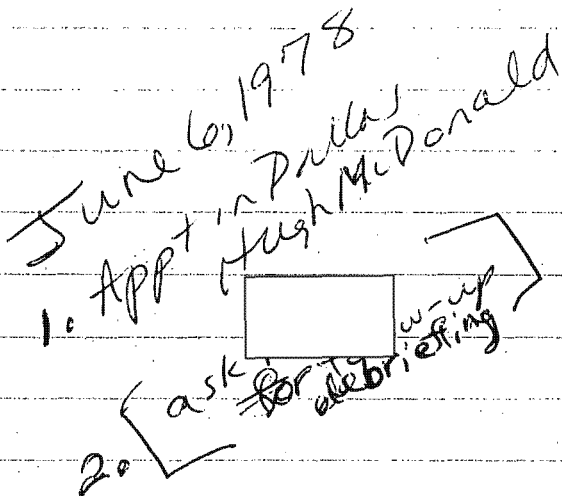 June 6, 1978
1. Appt in Dallas
Hugh McDonald
2. [ask w-up ]
for debriefing